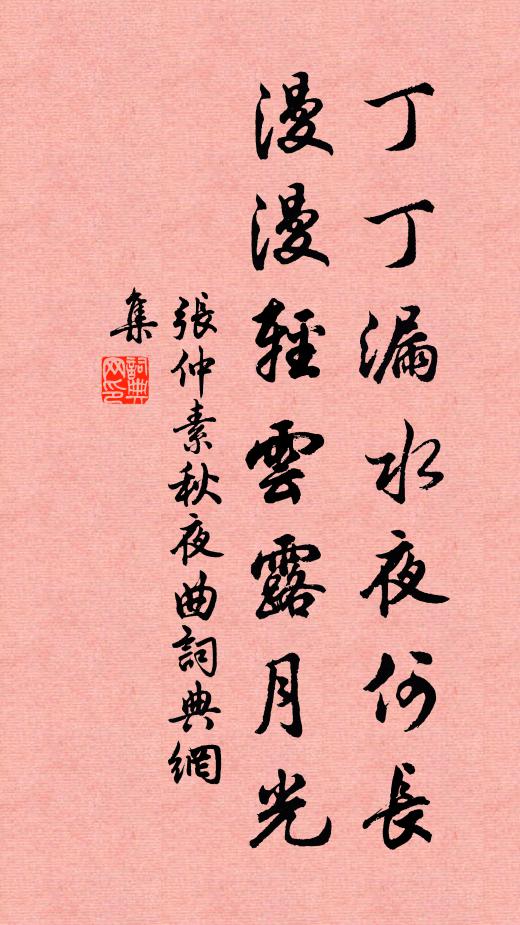 丁丁漏水夜何長
漫漫輕雲露月光
張仲素秋夜曲詞典網
集
詞典
网印